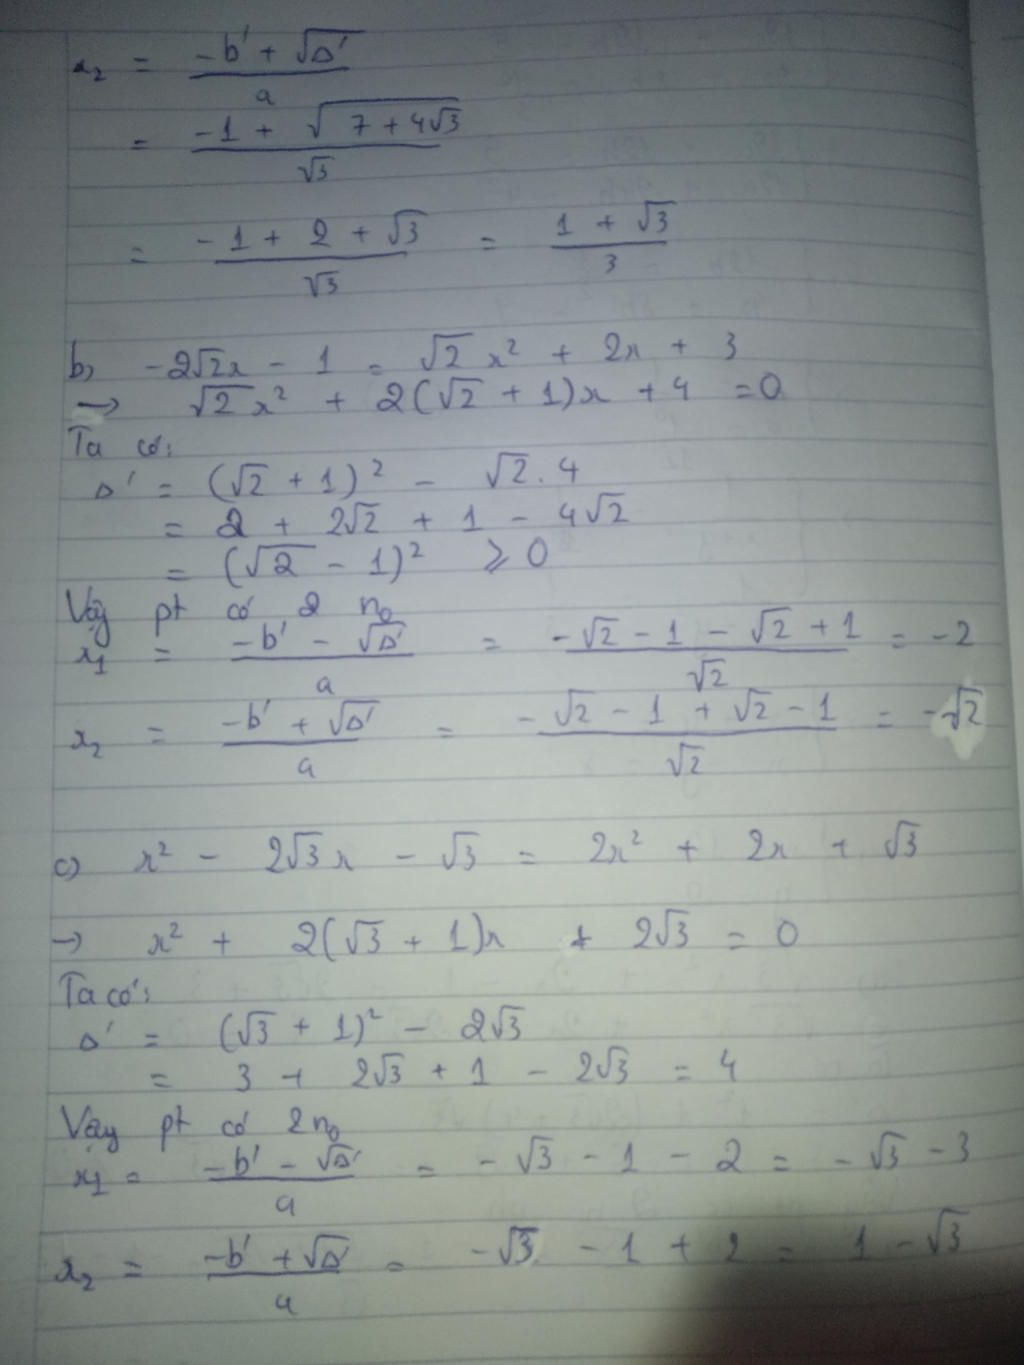 x₂ = (-b' + √Δ') / a
= (-1 + √(7 + 4√3)) / √3
= (-1 + 2 + √3) / √3 = (1 + √3) / 3
b) -2√2x - 1 = √2 x² + 2x + 3
→ √2 x² + 2(√2 + 1)x + 4 = 0
Ta có:
Δ' = (√2 + 1)² - √2 . 4
= 2 + 2√2 + 1 - 4√2
= (√2 - 1)² ⩾ 0
Vậy pt có 2 n₀
x₁ = (-b' - √Δ') / a = (-√2 - 1 - √2 + 1) / √2 = -2
x₂ = (-b' + √Δ') / a = (-√2 - 1 + √2 - 1) / √2 = -√2
c) x² - 2√3x - √3 = 2x² + 2x + √3
→ x² + 2(√3 + 1)x + 2√3 = 0
Ta có:
Δ' = (√3 + 1)² - 2√3
= 3 + 2√3 + 1 - 2√3 = 4
Vậy pt có 2n₀
x₁ = (-b' - √Δ') / a = -√3 - 1 - 2 = -√3 - 3
x₂ = (-b' + √Δ') / a = -√3 - 1 + 2 = 1 - √3